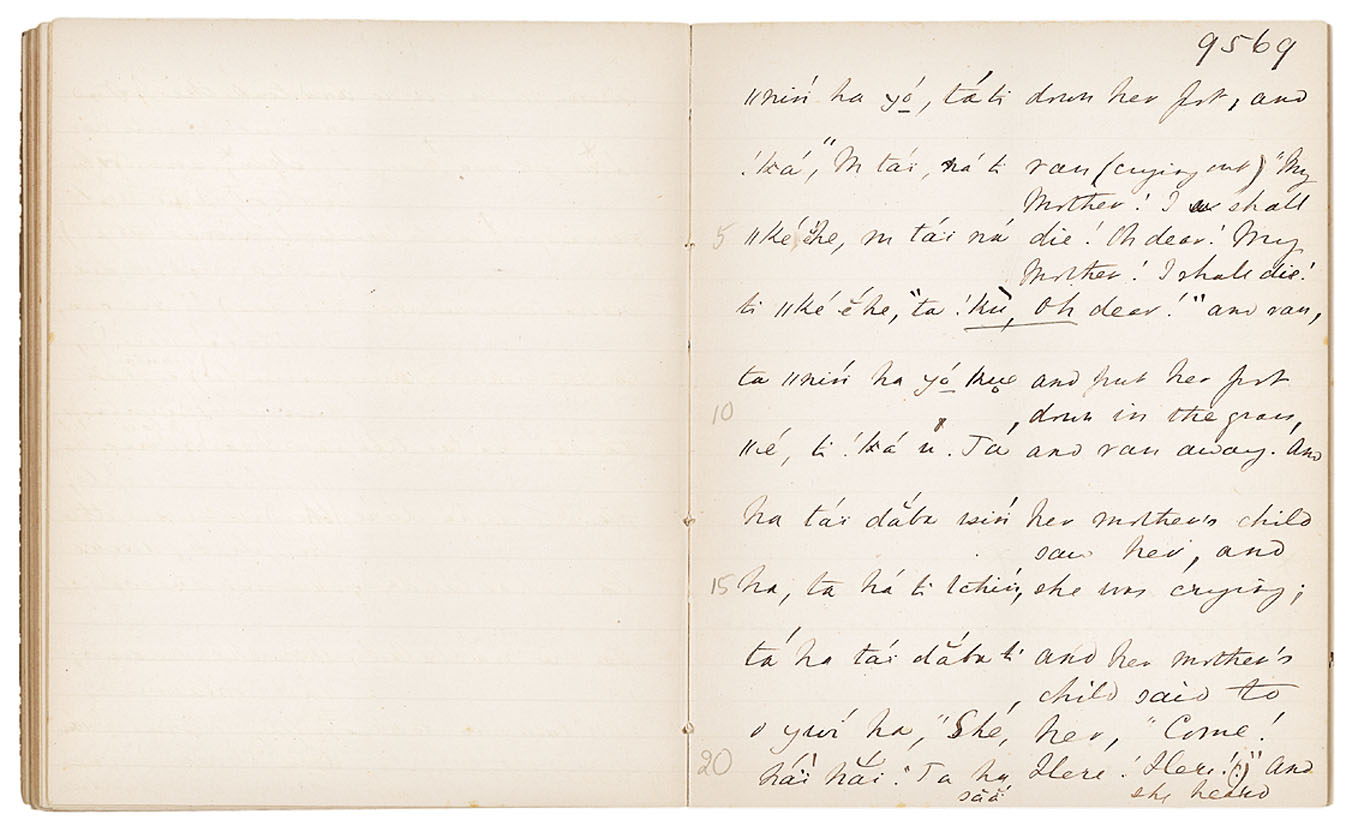 9569
"nin̄ ha yó, tá ti down her foot, and
!ká," M tái, ná ti ran (crying out) "My
Mother! I shall
5 "ké ĕ́he, m tái ná die! Oh dear! My
Mother! I shall die!
ti "ké ĕ́he," ta !kù, Oh dear!" and ran,
ta "nin̄ ha yó and put her foot
10 , down in the grass,
"é, ti !ká u. Tá and ran away. And
ha tái dắba her mother's child
saw her, and
15 ha, ta há ti she was crying;
tá ha tái dắba ti and her mother's
, child said to
o ha, "Shé, her, "Come!
20 hái hái." Ta ha Here! Here!(?)" And
sāā she heard